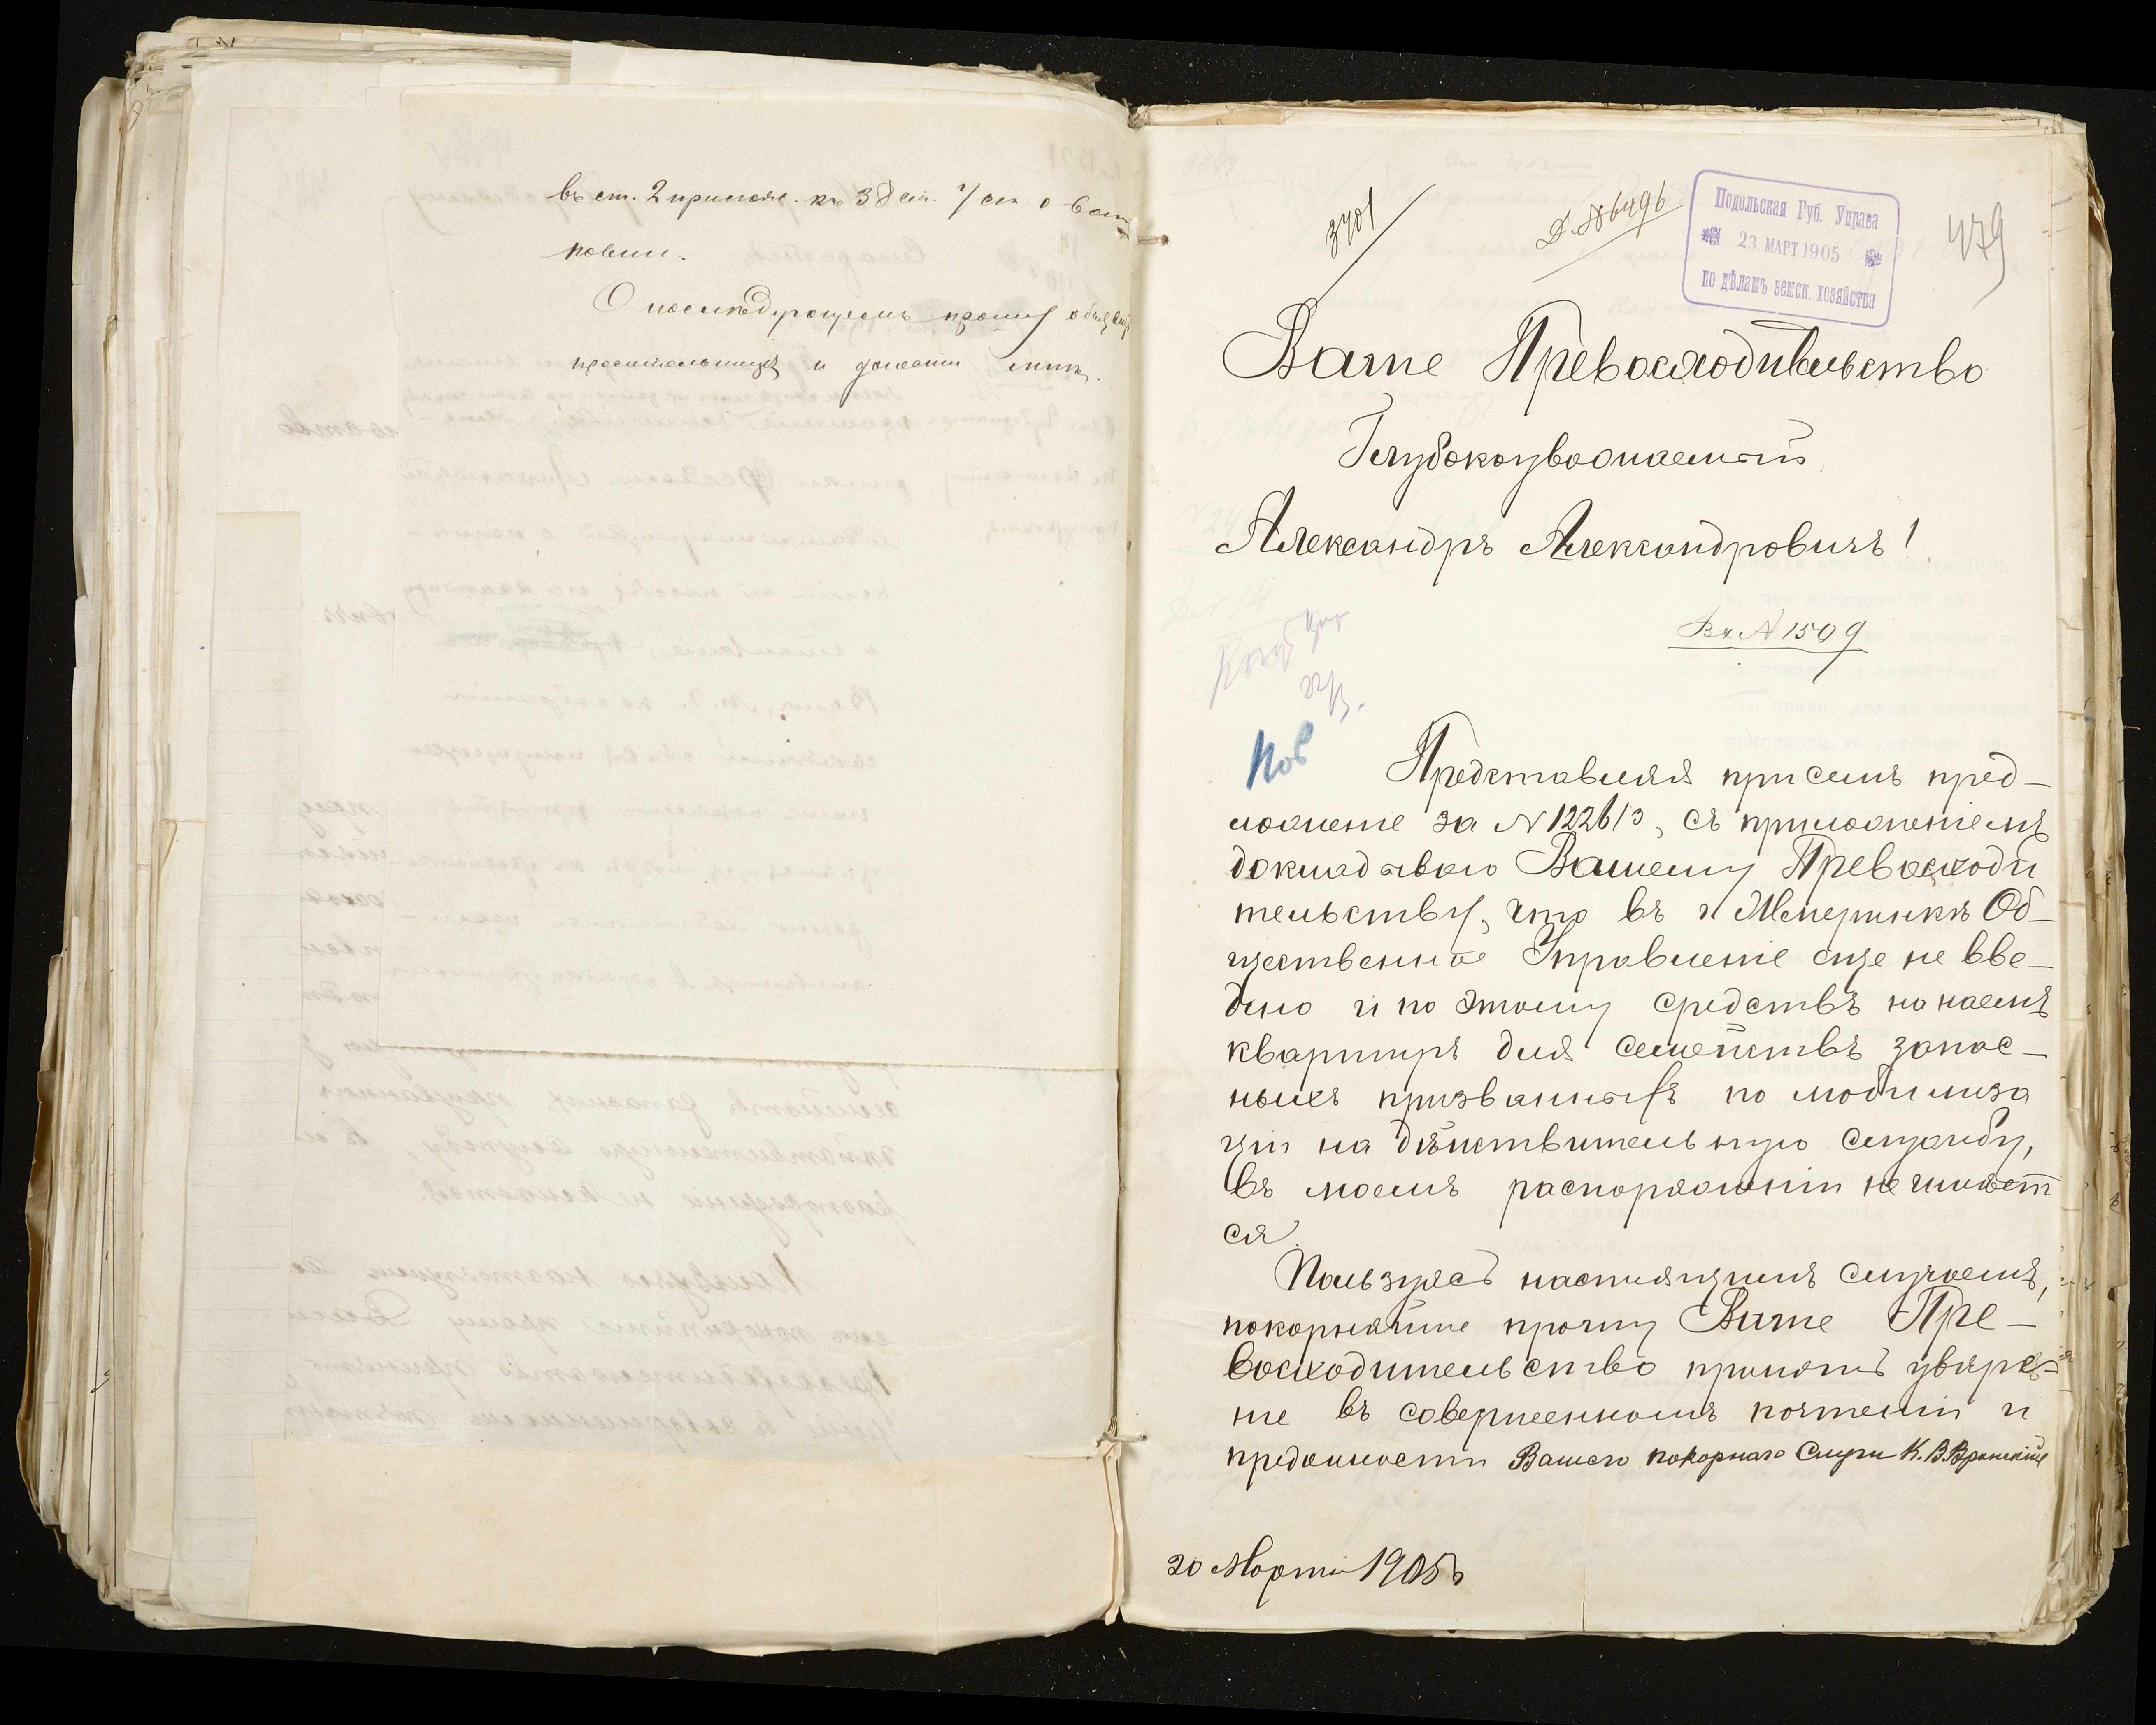 въ ст. 2 прилож. къ 38 ст. Уст. о воин
повин.
О послѣдующемъ прошу объявить
просительницѣ и донести мнѣ.
3701
Д. № 6496
479
Подольская Губ. Управа
23 МАРТ 1905
по дѣламъ земск. хозяйства
Ваше Превосходительство
Глубокоуважаемый
Александръ Александровичъ!
Вх № 1509
Представляя при семъ пред-
ложеніе за № 12261/3, съ приложеніемъ
докладываю Вашему Превосходи
тельству, что въ г Жмеринкѣ Об-
щественное Управленіе еще не вве-
дено и по этому средствъ на наемъ
квартиръ для семействъ запас-
ныхъ призванныхъ по мобилиза
ціи на дѣйствительную службу,
въ моемъ распоряженіи не имѣет
ся.
Пользуясь настоящимъ случаемъ,
покорнѣйше прошу Ваше Пре-
восходительство принять увѣре-
ніе въ совершенномъ почтеніи и
преданности Вашего покорнаго Слуги К. В.
20 Марта 1905 г